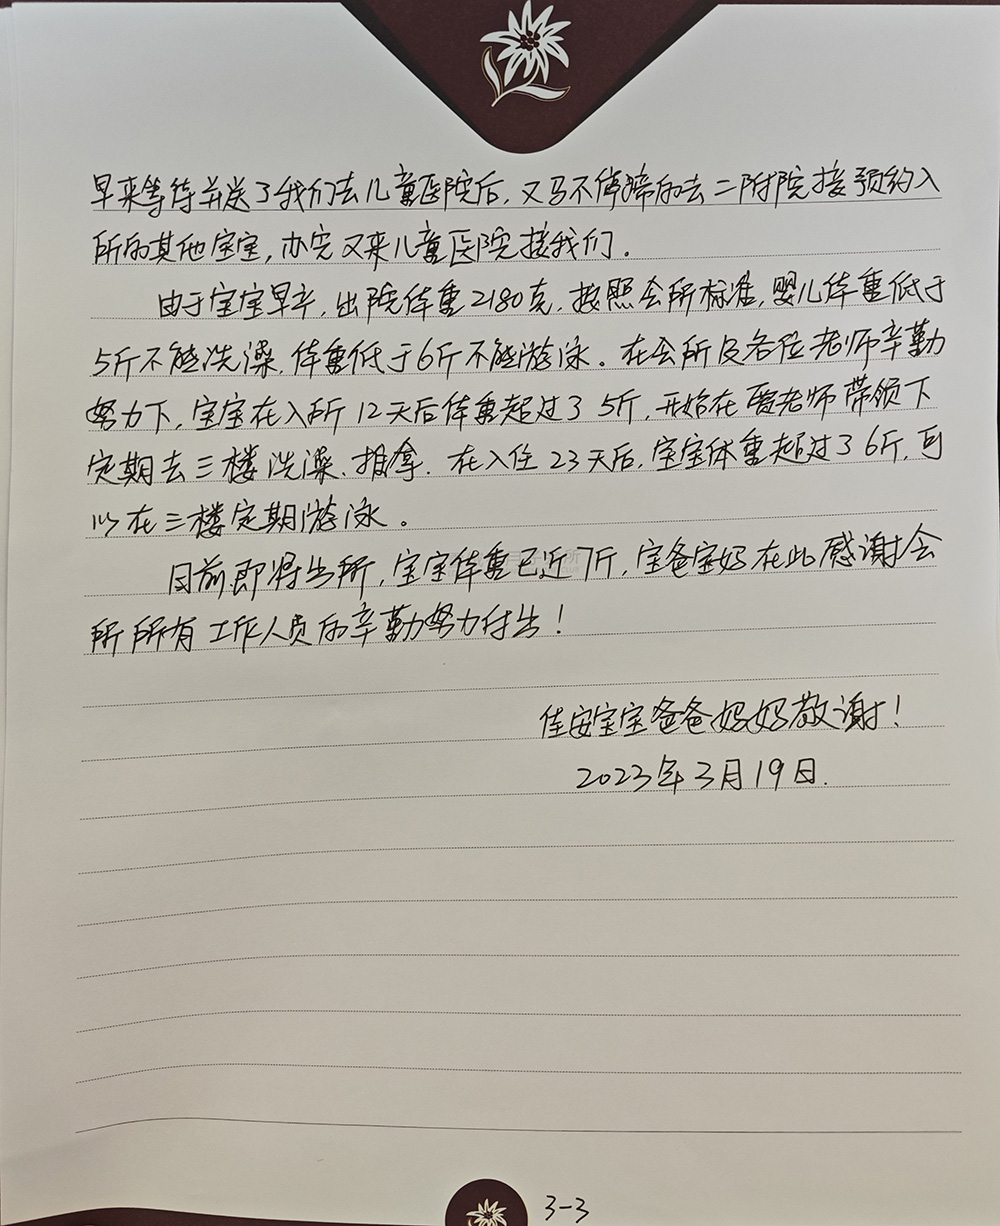 早来等待并送了我们去儿童医院后，又马不停蹄的去二附院接预约入
所的其他宝宝，办完又来儿童医院接我们。
由于宝宝早产，出院体重2180克，按照会所标准，婴儿体重低于
5斤不能洗澡，体重低于6斤不能游泳。在会所及各位老师辛勤
努力下，宝宝在入所12天后体重超过了5斤，开始在老师带领下
定期去三楼洗澡、推拿．在入住23天后，宝宝体重超过了6斤，可
以在三楼定期游泳。
目前即将出所，宝宝体重已近7斤，宝爸宝妈在此感谢会
所所有工作人员的辛勤努力付出！
佳安宝宝爸爸妈妈敬谢！
2023年3月19日．
3-3